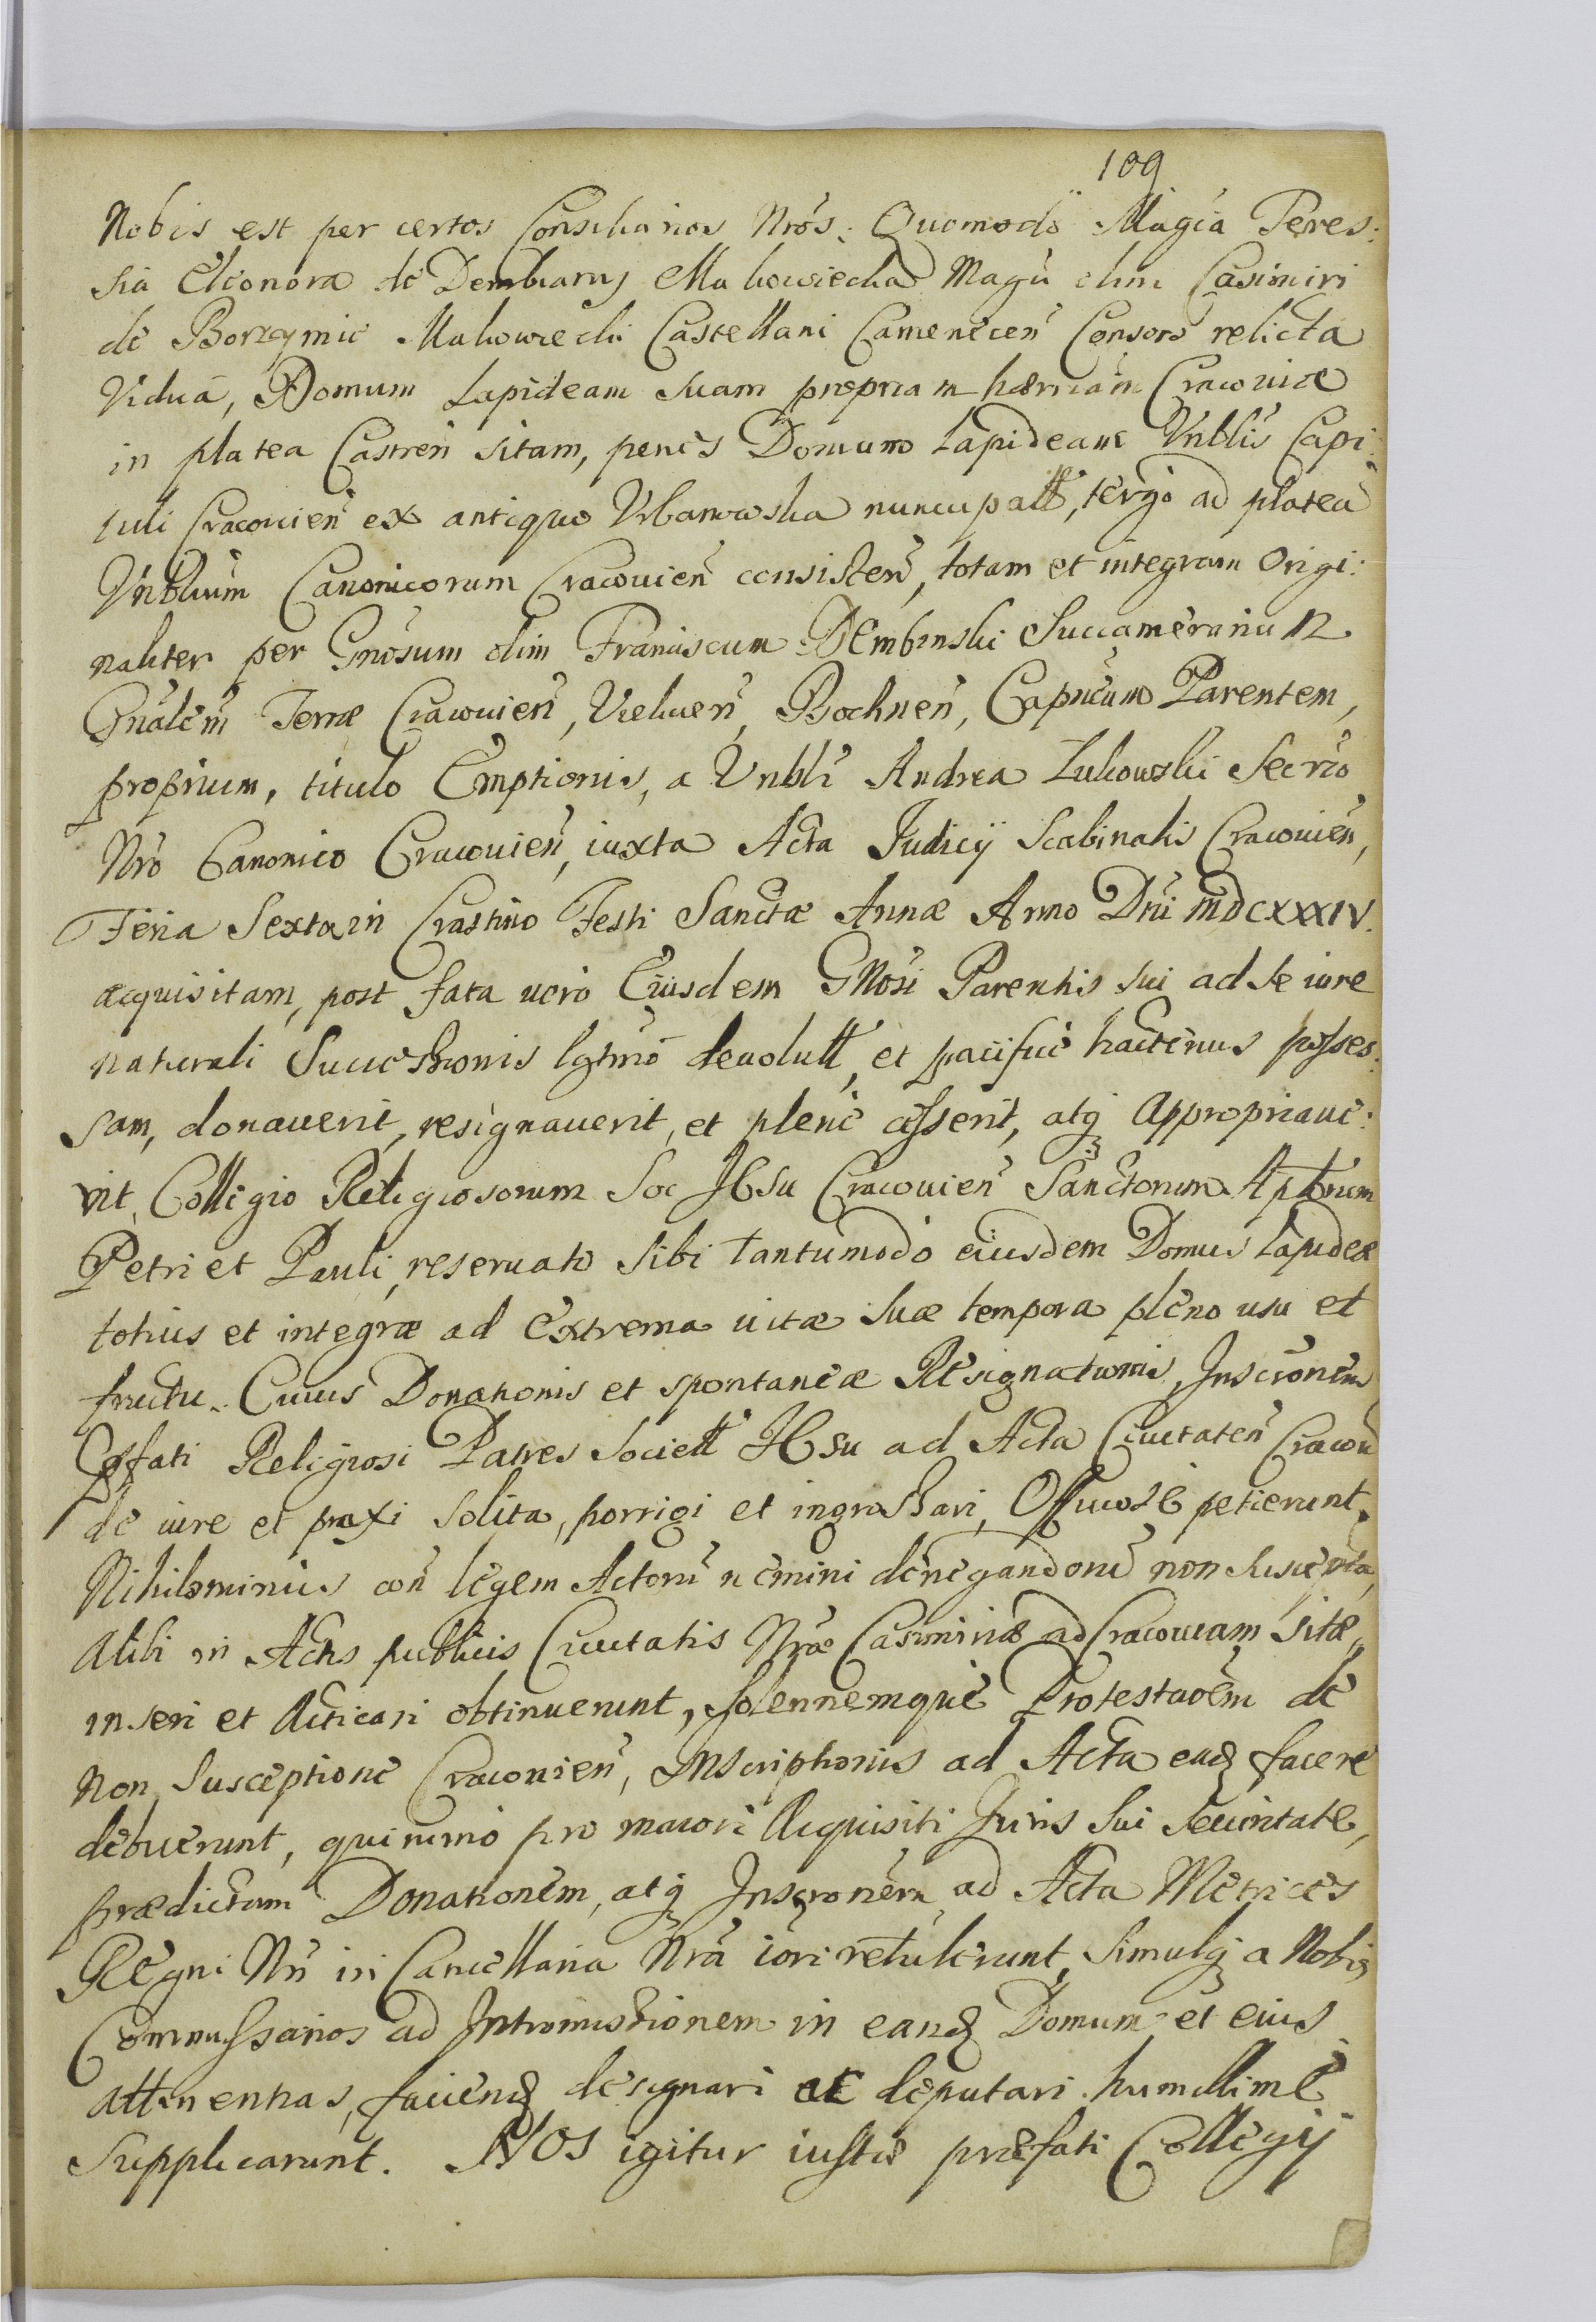 109
Nobis est per certos Consiliarios Nrós: Quomodo Magca Teres:
sia Eleonora de Dembiany Makowiecka Magci olim Casimiri
de Borzymie Makowiecki Castellani Camenecen̄ Consors relicta
Vidua, Domum Lapideam suam propriam hærnam Cracoviæ
in platea Castren̄ sitam, penes Domum Lapideam Vnblis Capi:
tuli Cracovien̄ ex antiquo Vrbanowska nuncupatt, tergo ad plateā
Vnblium Canonicorum Cracovien̄ consisten̄, totam et integram Origi:
naliter per Gnosum olim Franciscum Dembinski Succamerarium
Gnalem Terræ Cracovien̄, Vielicen̄, Bochnen̄, Capneum Parentem,
proprium, titulo Emptionis, a Vnbli Andrea Lukowski Secrio
Nro Canonico Cracovien̄, iuxta Acta Judicÿ Scabinalis Cracovien̄,
Feria Sexta in Crastino Festi Sanctæ Annæ Anno Dni MDCXXXIV.
acquisitam, post fata vero Eiusdem Gnosi Parentis sui ad se iure
naturali Successionis lgtmo devolutt, et pacifice hactenus posses:
sam, donaverit, resignaverit, et plene cesserit, atq Appropriave:
rit, Collegio Religiosorum Soc JEsu Cracovien̄ Sanctorum Aplorum
Petri et Pauli, reservato sibi tantumodo eiusdem Domus Lapideæ
totius et integræ ad extrema vitæ suæ tempora pleno usu et
fructu. Cuius Donationis et spontaneæ Resignationis, Inscronem
Pfati Religiosi Patres Societt JEsu ad Acta Civitaten̄ Cracov̄
de iure et praxi solita, porrigi et ingrossari, Officiose petierunt.
Nihilominus con̄ legem Actorū nemini denegandorū non suscepta,
alibi in Actis publicis Civitatis Nræ Casimiriæ ad Cracoviam sitæ,
inseri et Acticari obtinuerunt, solennemque Protestaōem de
non Susceptione Cracovien̄, Inscriptionis ad Acta ead facere
debuerunt, quinimo pro maiori Acquisiti Juris sui Securitate,
prædictam Donationem, atq Inscronem ad Acta Metrices
Regni Nri in Cancellaria Nra iori retulerunt, simulq a Nobis
Commissarios ad Intromissionem in eand Domum et eius
attinentias, faciend designari et deputari humillime
supplicarunt. NOS igitur iustæ præfati Collegÿ